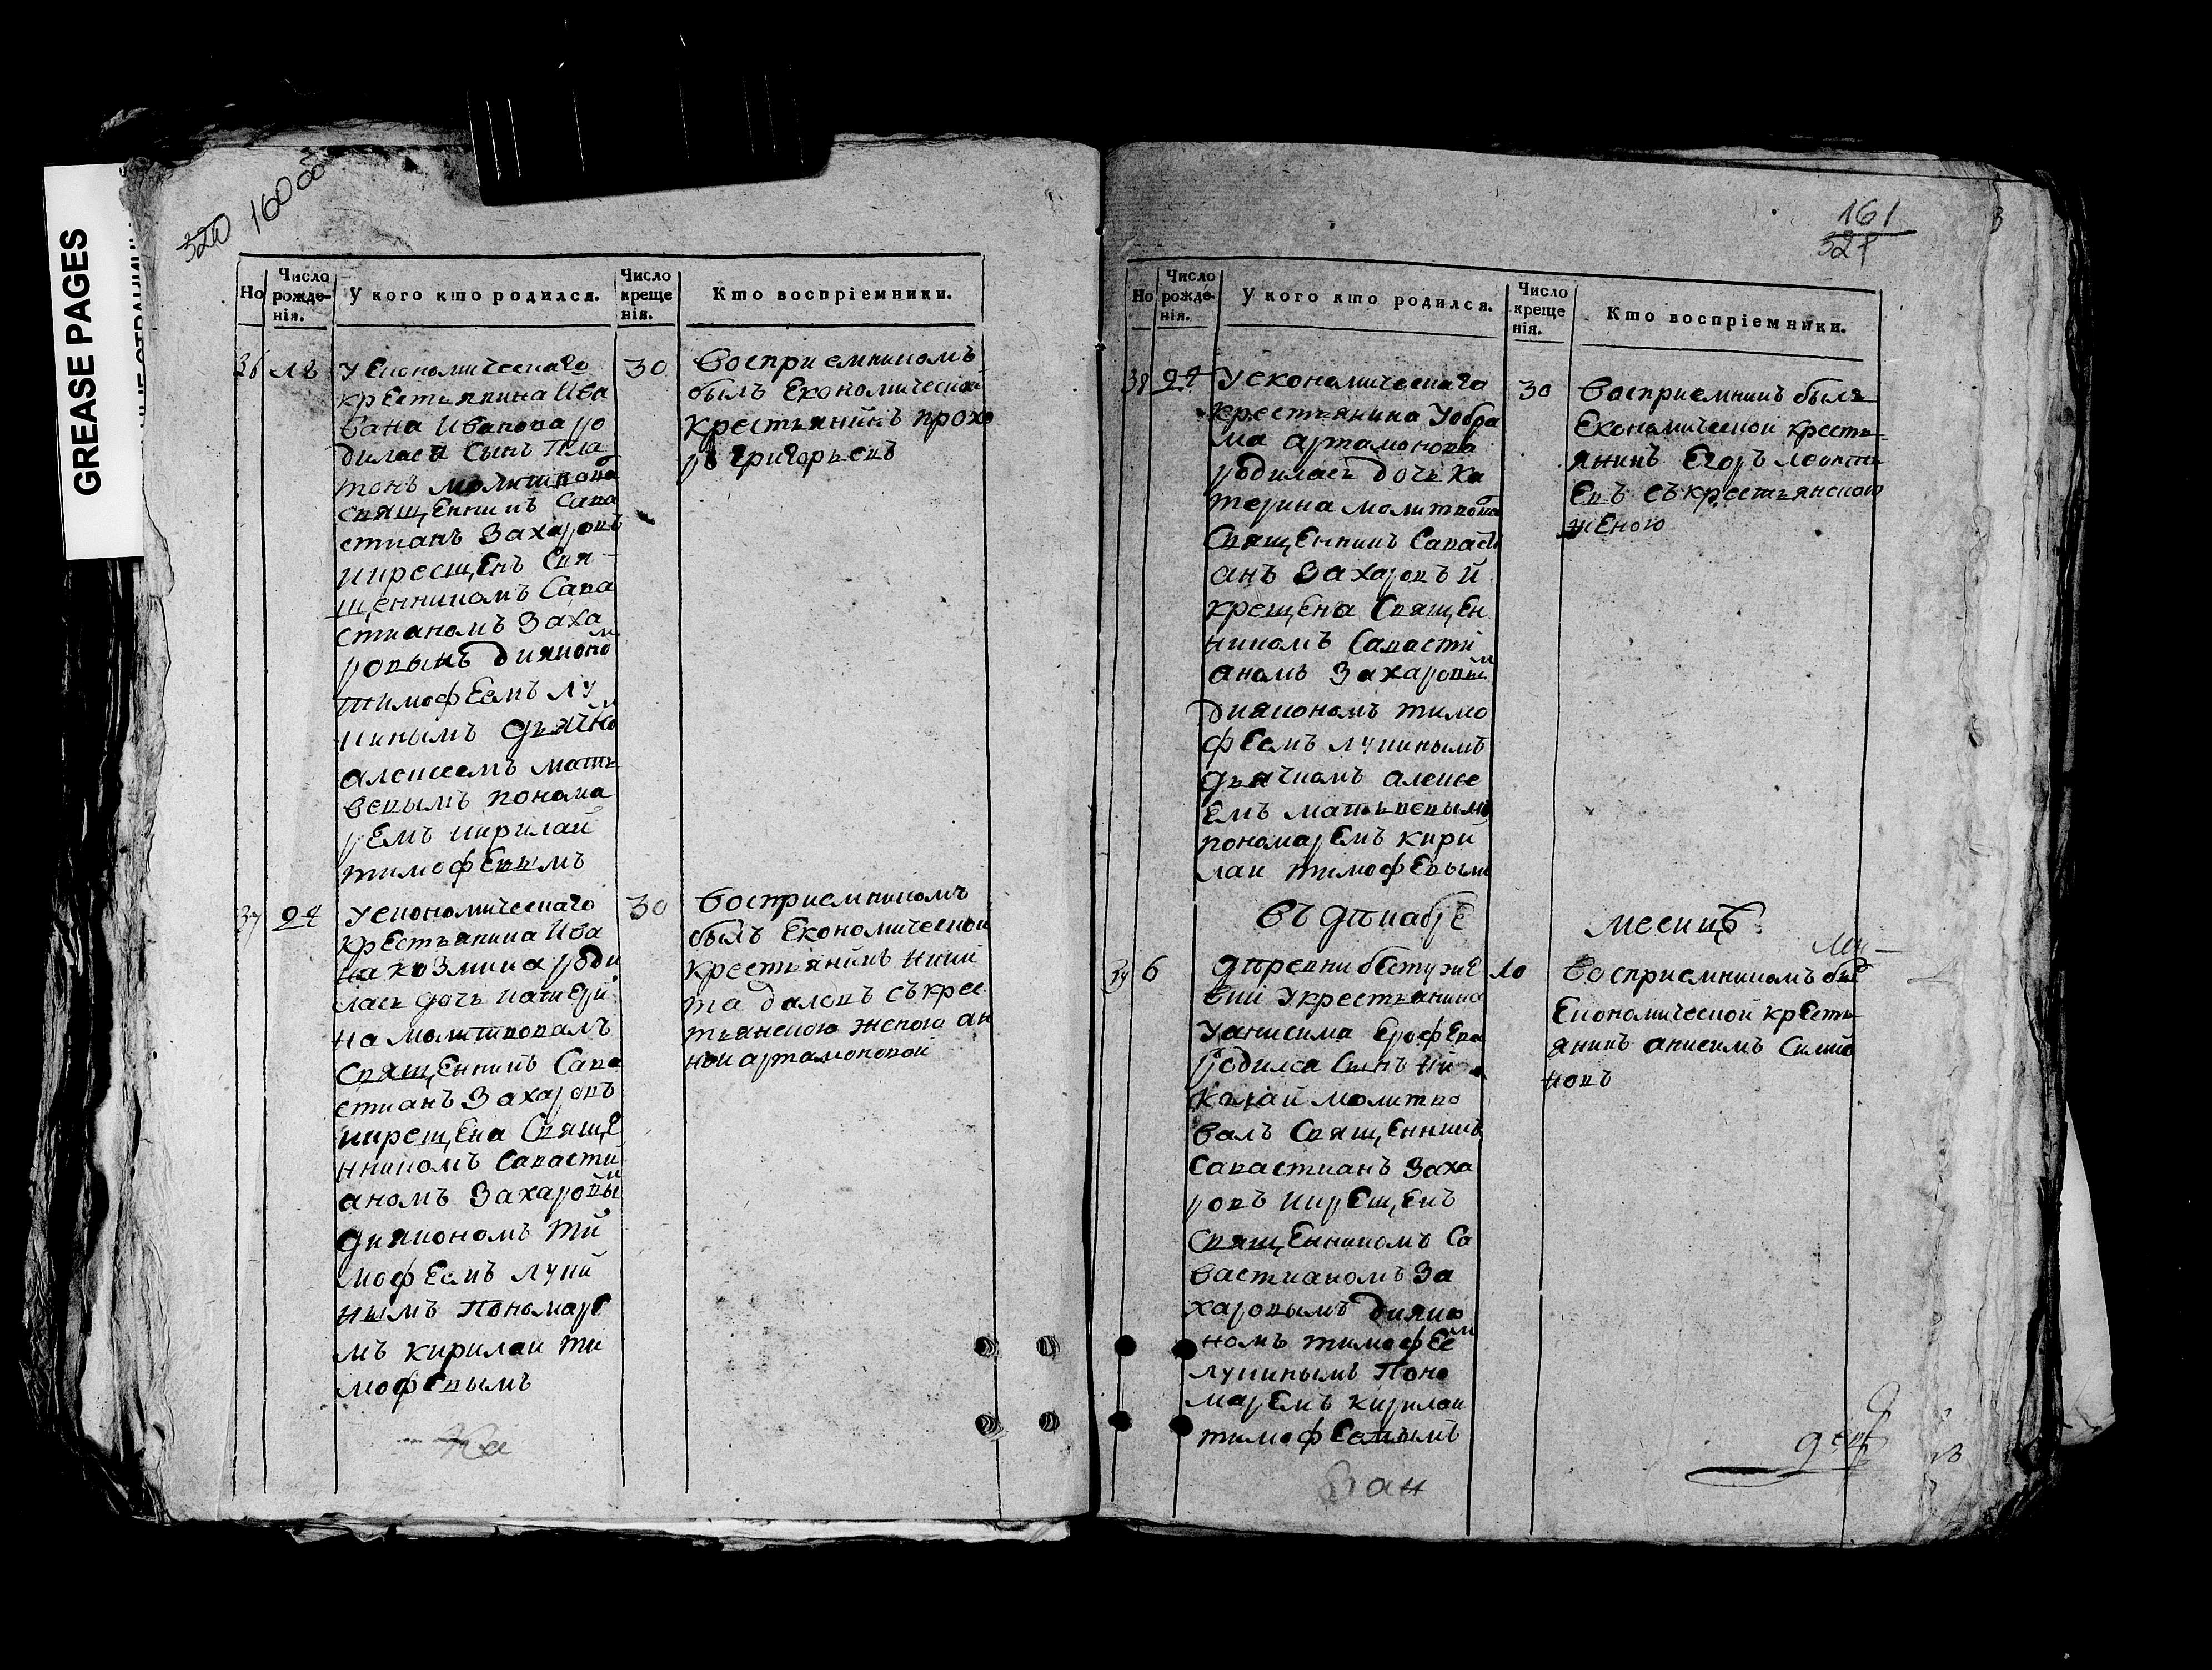 GREASE PAGES
320 160 об
Но
Число рожде- нія.
У кого кто родился.
Число креще нія.
Кто воспріемники.
36
18
У Економическаго
крестьянина Ива
вана Иванова ро
дился сынъ Пла
тонъ молитвова
священникъ Сава
стианъ Захаровъ
икрещенъ Свя
щенникомъ Сава
стианомъ Заха
ровымъ дияконом
тимофеемъ лу
кинымъ дьячком
алексеемъ мать
веевымъ понома
ремъ кирилаи
тимофевымъ
30
Восприемникомъ
былъ Економическои
крестьянинъ прохо
ръ григорьевъ
37
24
У економическаго
крестьянина Ива
на козмина роди
лась дочь катери
на молитвовалъ
Священникъ Сава
стианъ Захаровъ
икрещена Свяще
нникомъ Савасти
аномъ Захаровым
дияконом ти
мофеемъ луки
нымъ Пономаре
мъ кирилаи ти
мофевымъ
30
Восприемникомъ
былъ Економическои
крестьянинъ ники
та валовъ съ крес
тьянскою женою ан
нои артамоновой
161
321
Но
Число рожде- нія.
У кого кто родился.
Число креще нія.
Кто воспріемники.
38
24
У економическаго
крестьянина
ма артамонова
родилась дочь Ка
терина молитвова
Священникъ Савасти
анъ Захаровъ и
крещена Священ
никомъ Савасти
аномъ Захаровым
дияконом тимо
феемъ лукинымъ
дьячкомъ алексе
емъ матьвевымъ
пономаремъ кири
лаи тимофевым
30
Восприемникъ былъ
Економической кресть
янинъ Егоръ леонть
евъ съ крестьянскою
женою
въ октиабре
месице
39
6
деревни
У крестьянина
У анисима Ерофеева
родился Сынъ Ни
калай молитво
валъ Священникъ
Савастианъ Заха
ровъ икрещенъ
Священникомъ Са
вастианомъ За
харовымъ дияко
номъ тимофеем
лукинымъ Поно
маремъ кирилаи
тимофевымъ
10
Восприемникомъ был
Економической кресть
янинъ анисимъ Симио
новъ